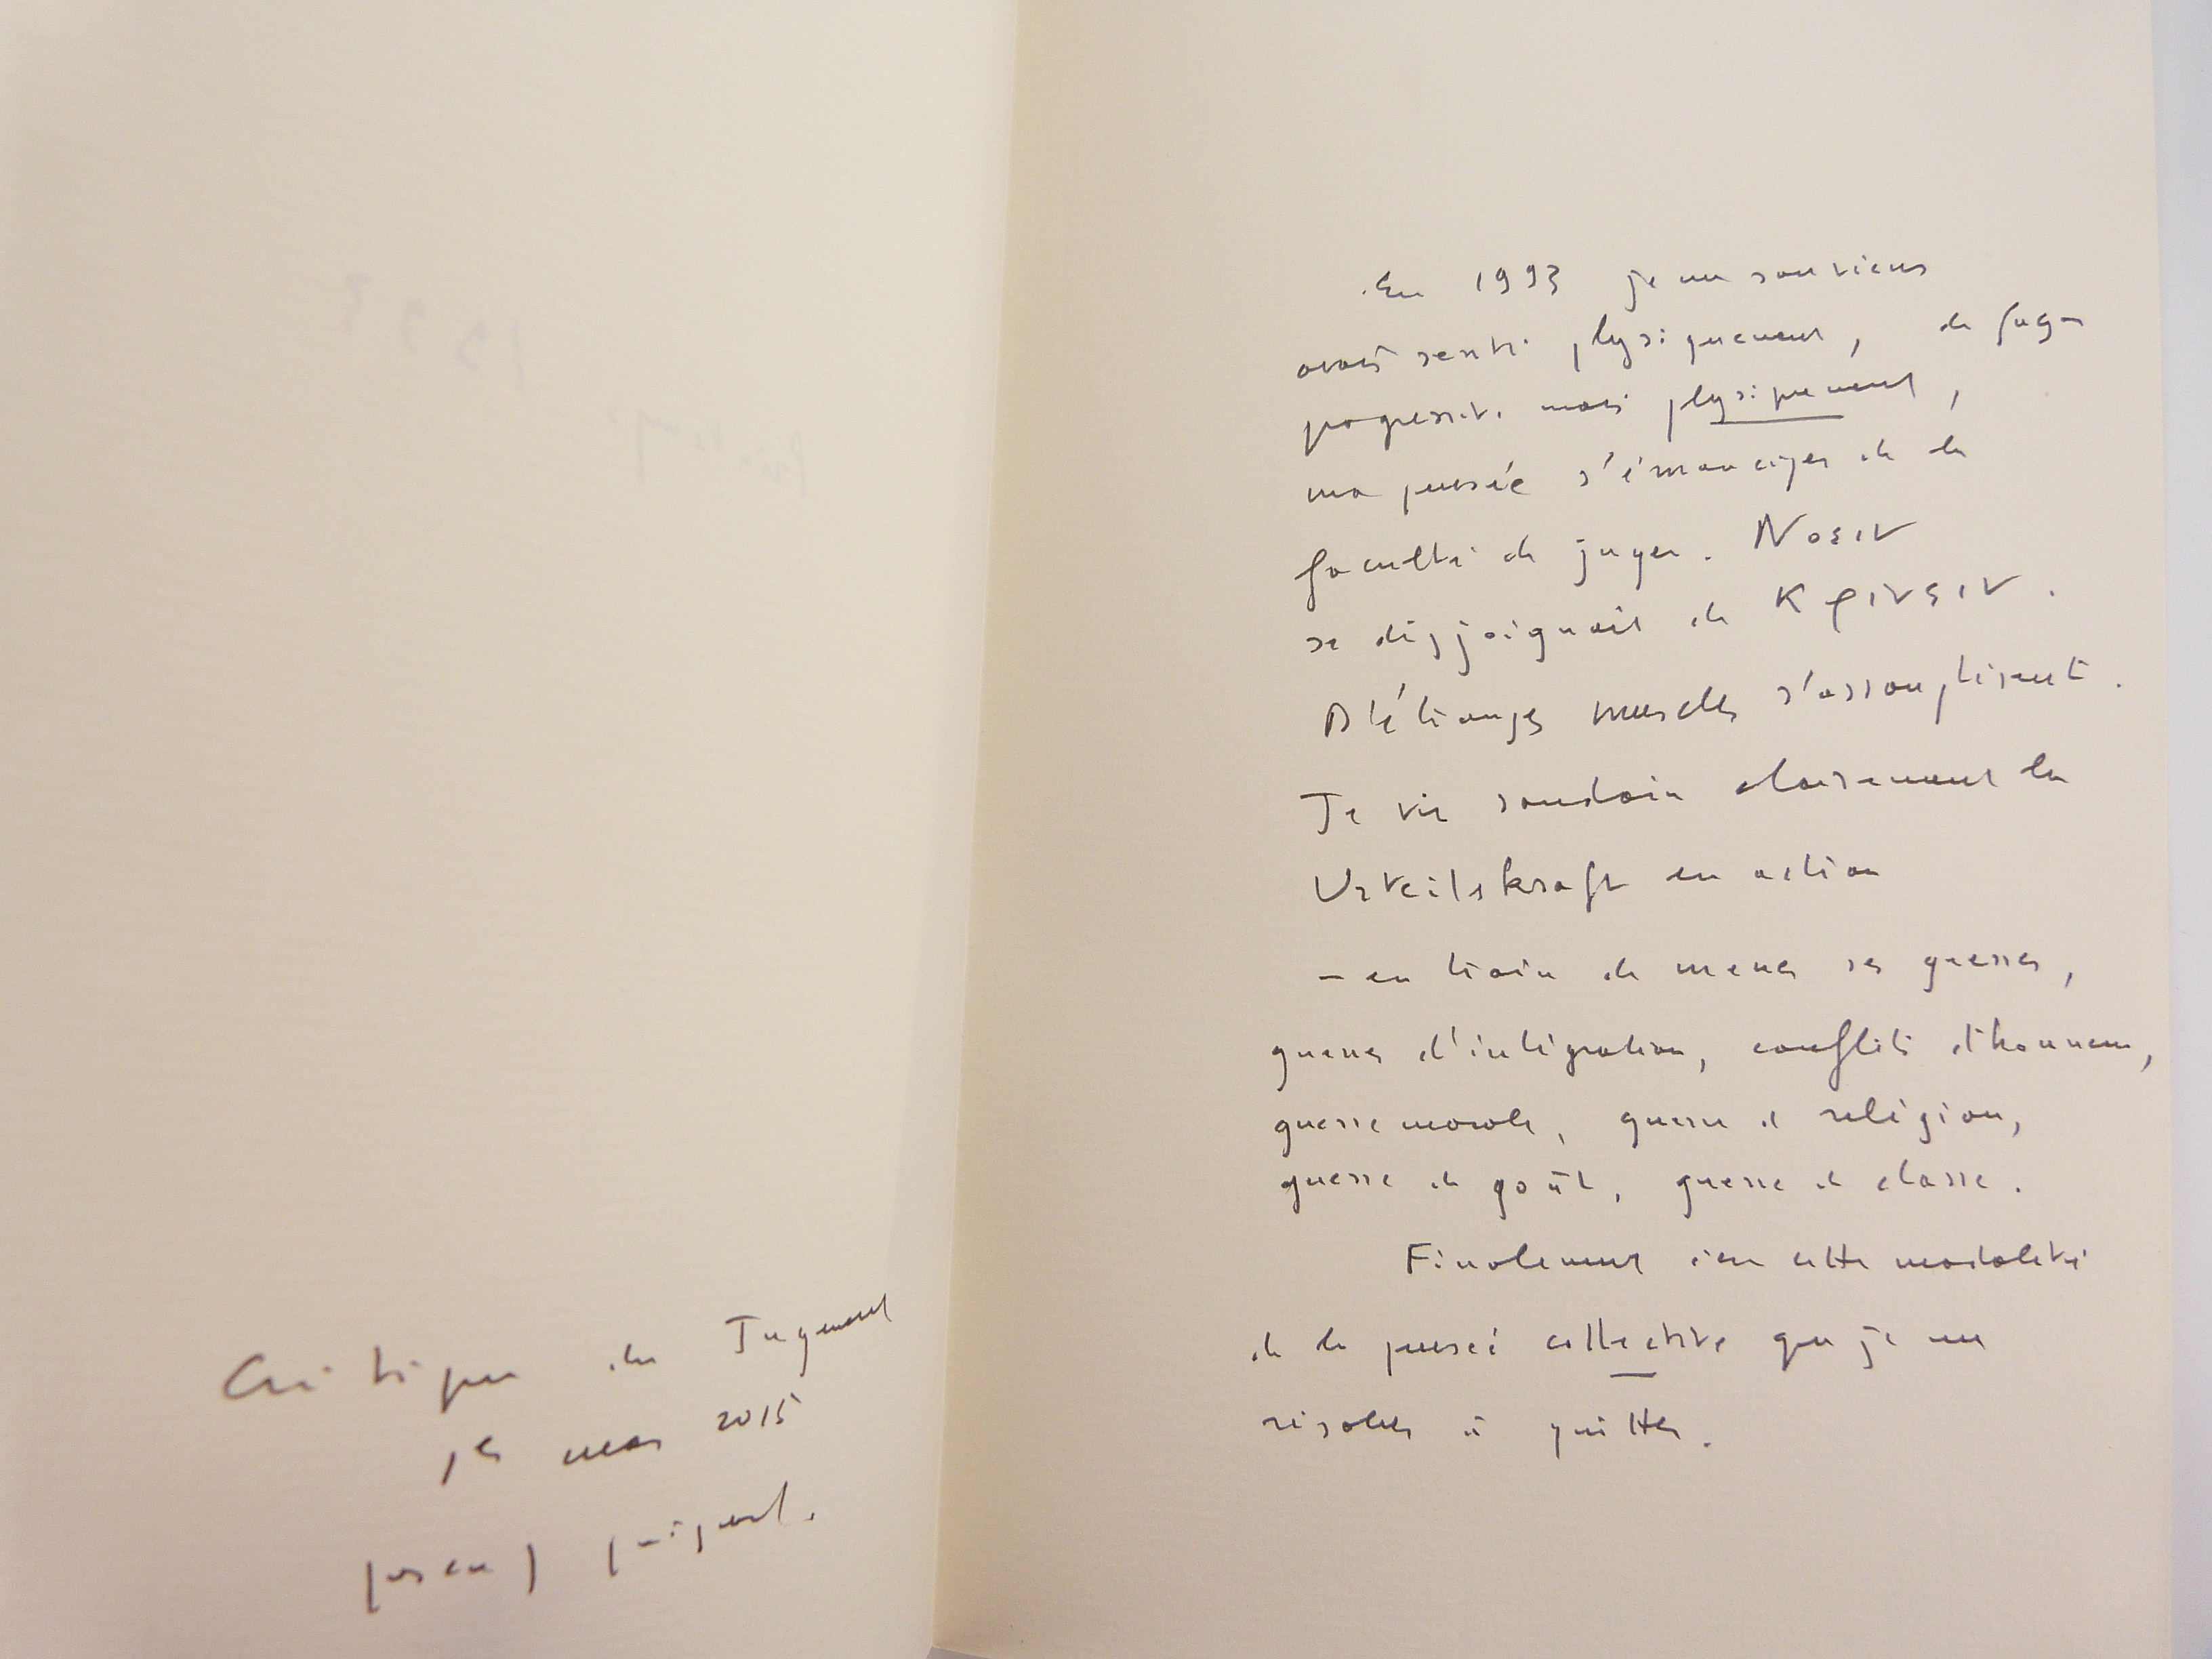 Critique du Jugement
1er mars 2015
pascal quignard.
En 1993 je me souviens
avoir senti physiquement, de façon
progressive mais physiquement,
ma pensée s'émanciper de la
faculté de juger. Noειν
se disjoignait de Κρινειν.
D'étranges muscles s'assouplirent.
Je vis soudain clairement la
Urteilskraft en action
– en train de mener ses guerres,
guerres d'intégration, conflits d'honneur,
guerre morale, guerre de religion,
guerre de goût, guerre de classe.
Finalement c'est cette modalité
de la pensée collective que je me
résolus à quitter.